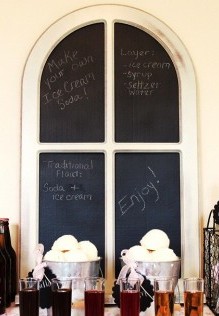 Make
your own
Ice Cream
Soda!
Layer:
- ice cream
- syrup
- Seltzer
water
Traditional
Float:
Soda +
ice cream
Enjoy!